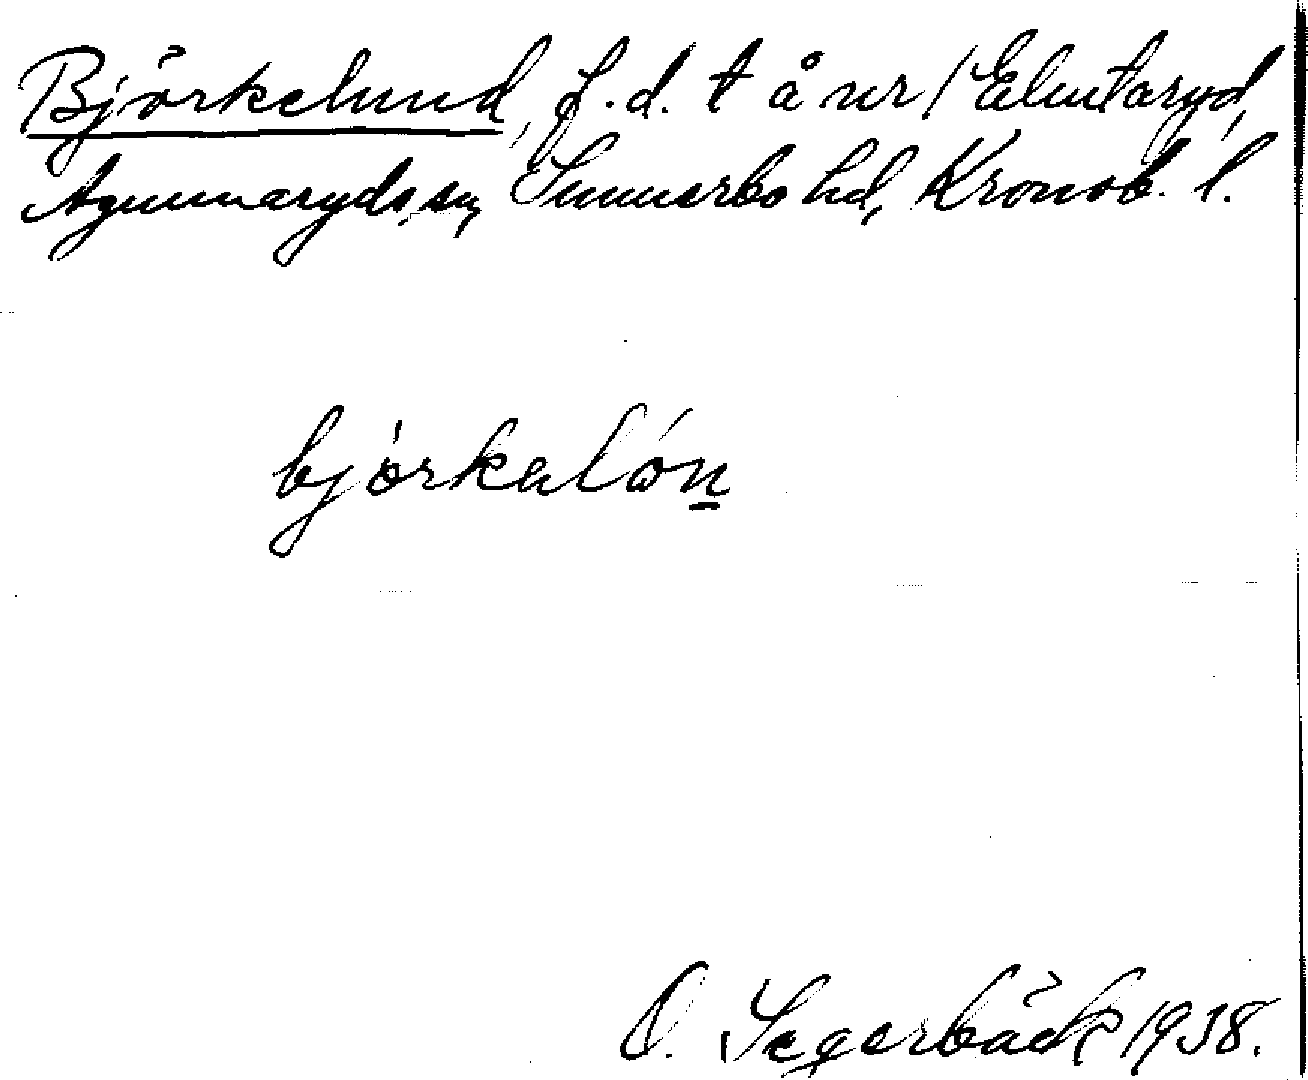 Björkelund, f.d. t å nr 1 Elmtaryd,
Agunnaryds sn, Sunnerbo hd, Kronob. l.
bjórkalón
O. Segerbäck 1938.